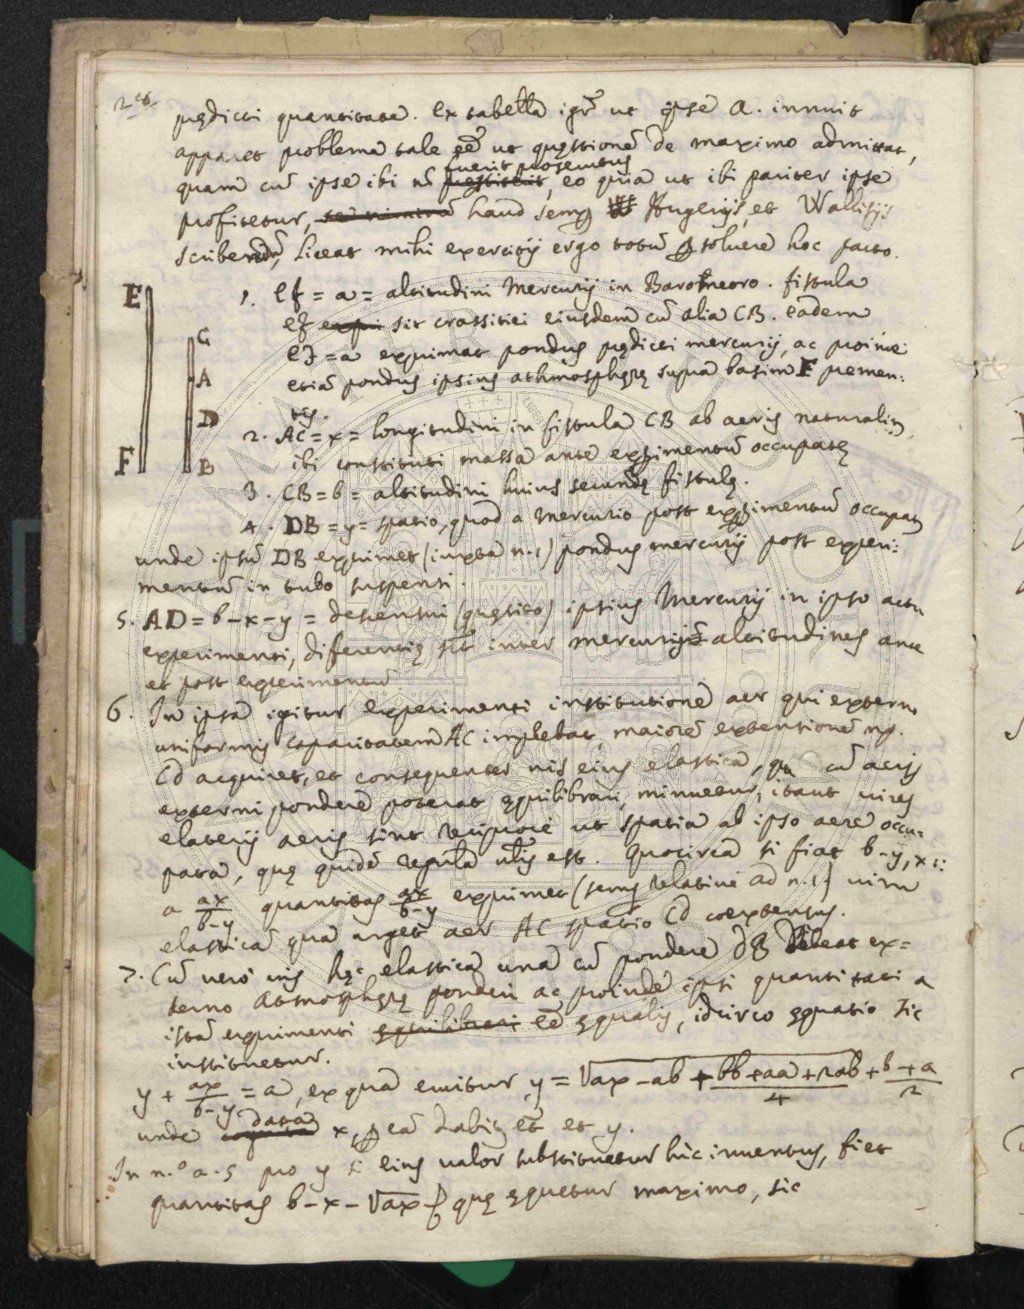 246
prędicti quantitate. Ex tabella igr̃ ut ipse A. innuit
apparet problema tale eē ut quęstionē de maximo admittat,
fuerit prosecutus
quam cū ipse ibi nō eo quia ut ibi pariter ipse
profitetur, haud semp Hugenijs, et Wallisijs
scribendū, liceat mihi exercitij ergo totū solvere hoc pacto.
E
F
C
A
D
B
1. Ef = a = altitudini Mercurij in Barometro. fistula
ef sit crassitiei eiusdem cū alia CB. eadem
ef = a exprimat pondus prędicti mercurij, ac proinde
etiā pondus ipsius athmosphęrę supra basim F premen:
tis.
2. AC = x = longitudini in fistula CB ab aeris naturaliter
ibi constituti massa ante experimentū occupatę
3. CB = b = altitudini huius secundę fistulę.
4. DB = y = spatio, quod a Mercurio post experimentū occupat
unde ipsū DB exprimet (iuxta n. 1) pondus mercurij post experi:
mentum in tubo suspensi.
5. AD = b - x - y = descensui (quęsito) ipsius Mercurij in ipso actu
experimenti, differentię scit inter mercurij altitudines ante
et post experimentum
6. In ipsa igitur experimenti institutione aer qui externo
uniformis capacitatem AC implebat, maiorē extensionē np.
Cd acquiret, et consequenter vis eius elastica, qua cū aeris
externi pondere poterat ęquilibrari, minuetur, itaut vires
elaterij aeris sint reciprocè ut spatia ab ipso aere occu:
pata, quę quidē regula ulis est. Quocirca si fiat b - y, x ::
a ax/b-y quantitas ax/b-y exprimet (semp relativè ad n. 1) vim
elasticā qua urget aer AC spatio Cd coextensus.
7. Cū verò vis hęc elastica una cū pondere dB debeat ex=
terno Atmosphęrę ponderi ac proinde ipsi quantitati a
istā exprimenti ęquilibrari eē ęqualis, idcirco ęquatio sic
instituetur.
y + ax/b-y = a, ex qua eruitur y = √ax - ab + bb+aa+2ab/4 + b+a/2
unde data x, ea dabit et y.
In n.º a. 5 pro y si eius valor substituatur hic inventus, fiet
quantitas b - x - √ax - quę ęquetur maximo, sic